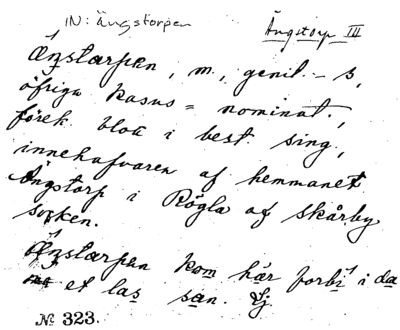 IN: Ängstorpen
Ängstorp III
Æŋstærpen, m., genit. - s,
öfriga kasus = nominat.,
förek. blott i best. sing.,
innehafvaren af hemmanet
Ängstorp i Rögla af Skårby
socken.
Æŋstærpen kom hær forbi i da
et las san. Lj.
№ 323.